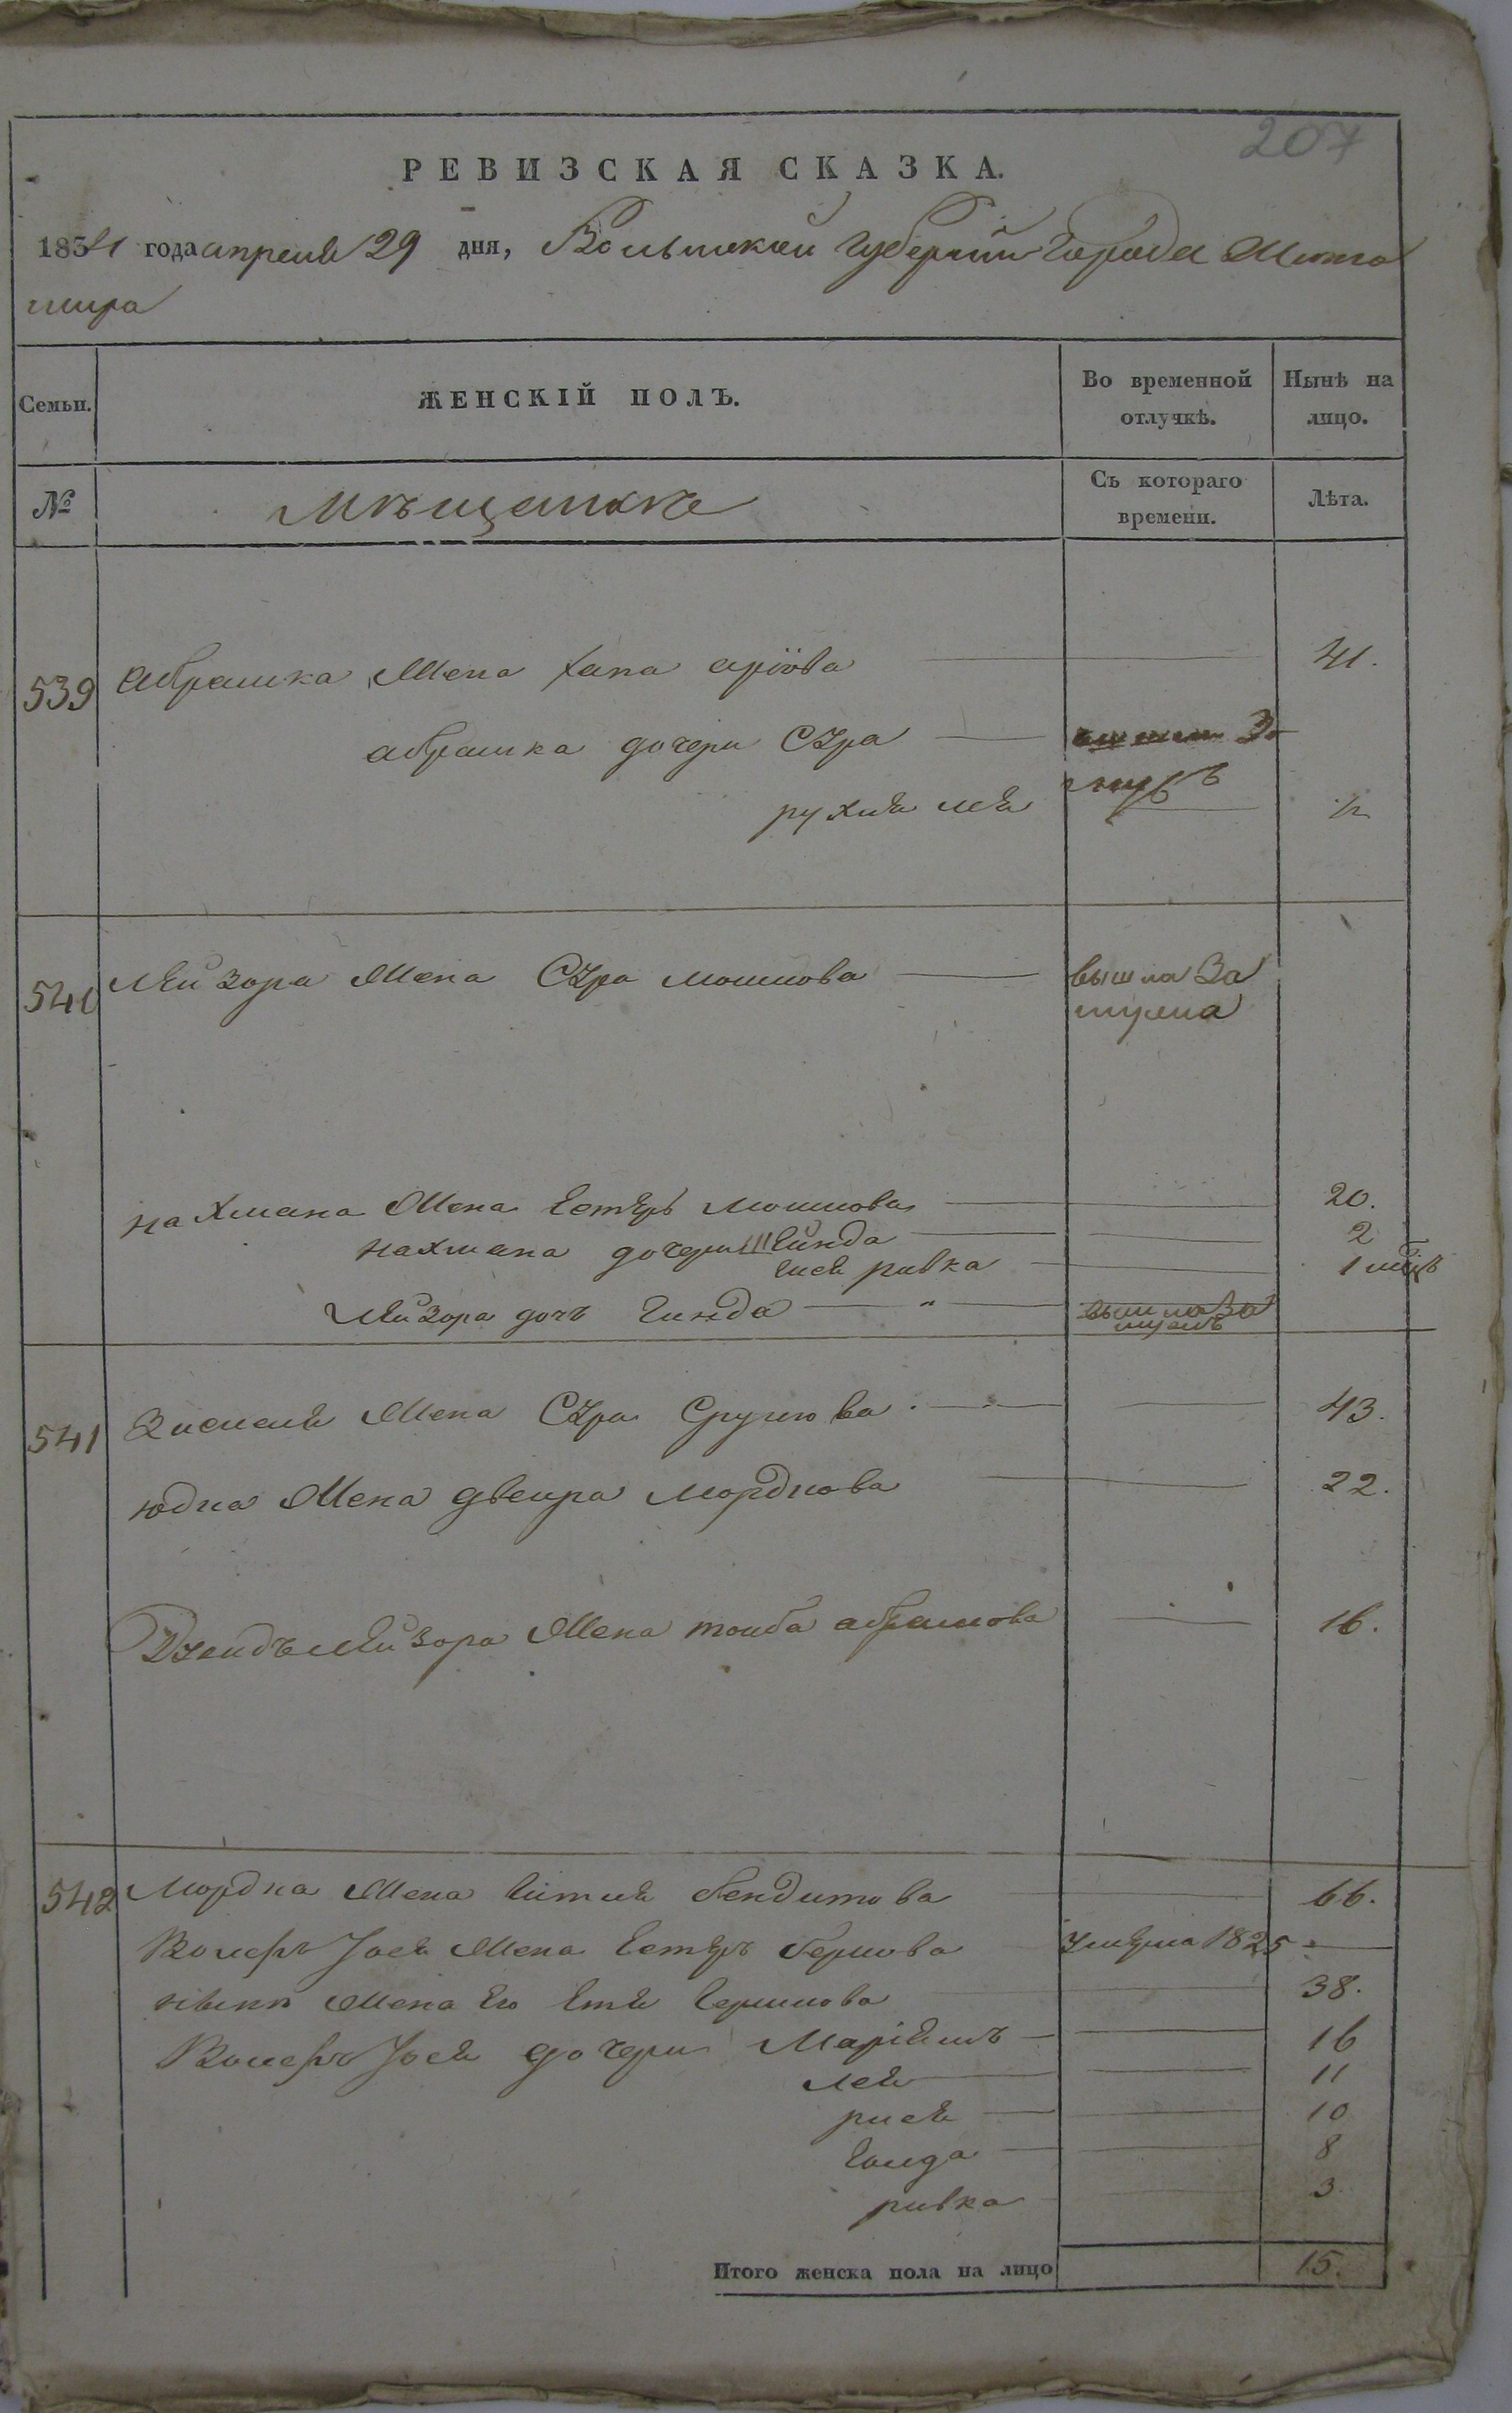 207
РЕВИЗСКАЯ СКАЗКА.
1834 года апреля 29 дня, Волынской Губернии Города Жито
мира
Семьи. ЖЕНСКІЙ ПОЛЪ. Во временной отлучкѣ. Нынѣ на лицо.
№ Мѣщанкѣ Съ котораго времени. Лѣта.
539 Абрашка Жена хана аріова 41.
абрашка дочери Сура
рухля лея
540 Лейзора Жена Сура мошкова вышла За
мужа
Нахмана Жена Естеръ мошкова 20.
Нахмана дочери Шейнда 2
ривка 1
Лейзора дочь Гинда вышла За
мужъ
541 Жена Сура Сруліова 43.
юдка Жена двейра мордкова 22.
Лейзора Жена тойба абрамова 16.
542 Мордка Жена Бендитова 66.
Вольфъ Іося Жена Естеръ Беркова умерла 1825
нынѣ Жена Его Етя Гершкова 38.
Вольфъ Іося дочери Маріямъ 16
лея 11
рися 10
Голда 8
ривка 3
Итого женска пола на лицо 15.